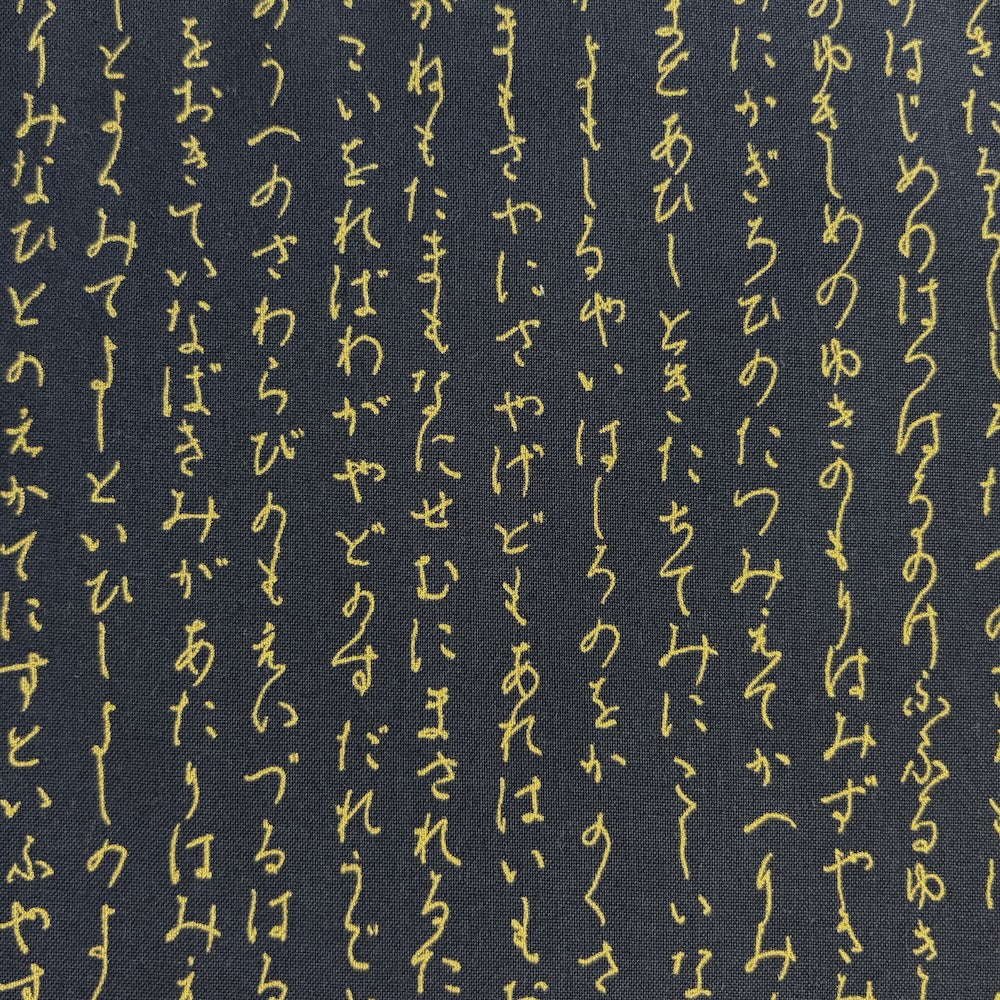 のはじめのはつはるのけふふるゆき
のゆきしめのゆきのもりはみずやき
にかぎろひのたつみえてかへりみ
まとあひしときたちてみにこしいな
よもしるやいはしろのをかのくさ
まもさやにさやげどもあれはいも
がねもたまもなにせむにまされるた
こいをればわがやどのすだれうご
のうへのさわらびのもえいづるはる
をおきていなばきみがあたりはみえ
しとよくみてよしといひしよしのよ
りみなひとのえかてにすといふやす